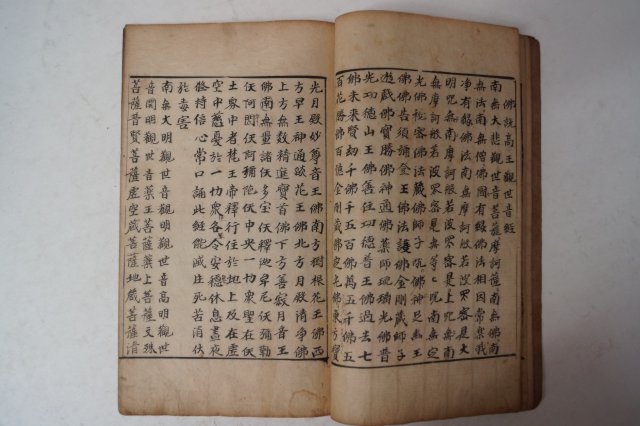 佛說高王觀世音經
南無大悲觀世音菩薩摩訶薩南無佛南
無法南無僧佛國有緣佛法相因常樂我
净有緣佛法南無摩訶般若波羅密是大
明呪南無摩訶般若波羅密是上呪無南
無摩訶般若波羅密是無等呪南無定
光佛秘密佛法藏佛師子吼佛神足幽王
佛佛告須彌登王佛法護佛金剛藏師子
遊戲佛寶勝佛神通佛藥師琉璃光佛普
光功德山王佛善住功德寶王佛過去七
佛未來賢劫千佛千五百佛萬五千佛五
百花勝佛百億金剛藏佛定光佛東方寶
光月殿妙尊音王佛南方樹根花王佛西
方皂王神通燄花王佛北方月殿清净佛
上方無数精進寶首佛下方善寂月音王
佛南無量諸仸多宝仸釋迦牟尼仸彌勒
仸阿閦仸阿彌陁仸中央一切衆生在仸
土界中者梵王帝釋行住於地上及在虛
空中慈憂於一切衆各令安穩休息晝夜
修持信心常口誦此經能滅庄死苦消伏
於毒害
南無大明觀世音觀明觀世音高明觀世
音開明觀世音藥王菩薩藥上菩薩文殊
菩薩普賢菩薩虛空藏菩薩地藏菩薩清